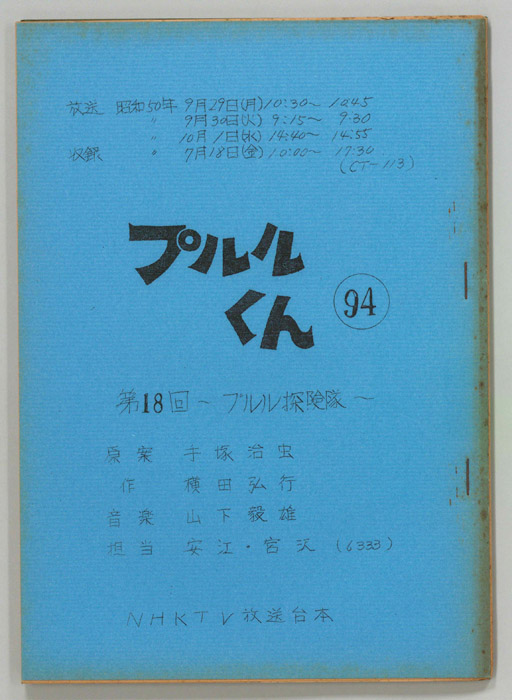 放送 昭和50年 9月29日(月) 10:30〜 10:45
〃 9月30日(火) 9:15〜 9:30
〃 10月1日(水) 14:40〜 14:55
収録 〃 7月18日(金) 10:00〜 17:30
(CT-113)
プルル
くん 94
第18回〜プルル探険隊〜
原案 手塚治虫
作 横田弘行
音楽 山下毅雄
担当 安江・宮沢(6333)
NHKTV放送台本